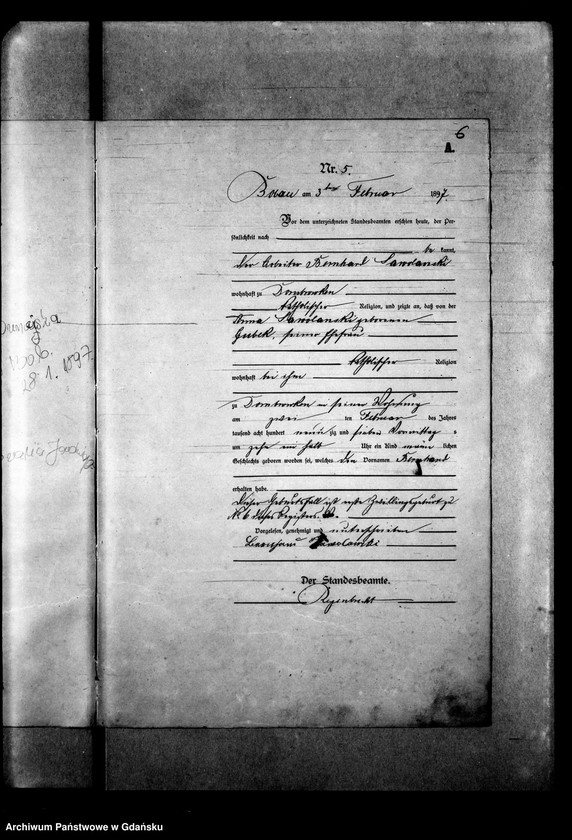 6
A.
Nr. 5.
am 3ten Februar 1897.
Vor dem unterzeichneten Standesbeamten erschien heute, der Per-
sönlichkeit nach
be kannt,
der Arbeiter Bernhard
wohnhaft zu Dombrowken
katholischer Religion, und zeigte an, daß von der
Anna geborenen
seiner Ehefrau
katholischer Religion
wohnhaft bei ihm
zu Dombrowken in seiner Wohnung
am zwei ten Februar des Jahres
tausend acht hundert neun zig und sieben Vormittag s
um zehn ein halb Uhr ein Kind männ lichen
Geschlechts geboren worden sei, welches den Vornamen Bernhard
erhalten habe.
Dieser Geburtsfall ist erste Zwillingsgeburt zu
No 6 dieses Registers.
Vorgelesen, genehmigt und unterschrieben
Der Standesbeamte.
Regenbrecht
28. 1. 1897
Archiwum Państwowe w Gdańsku